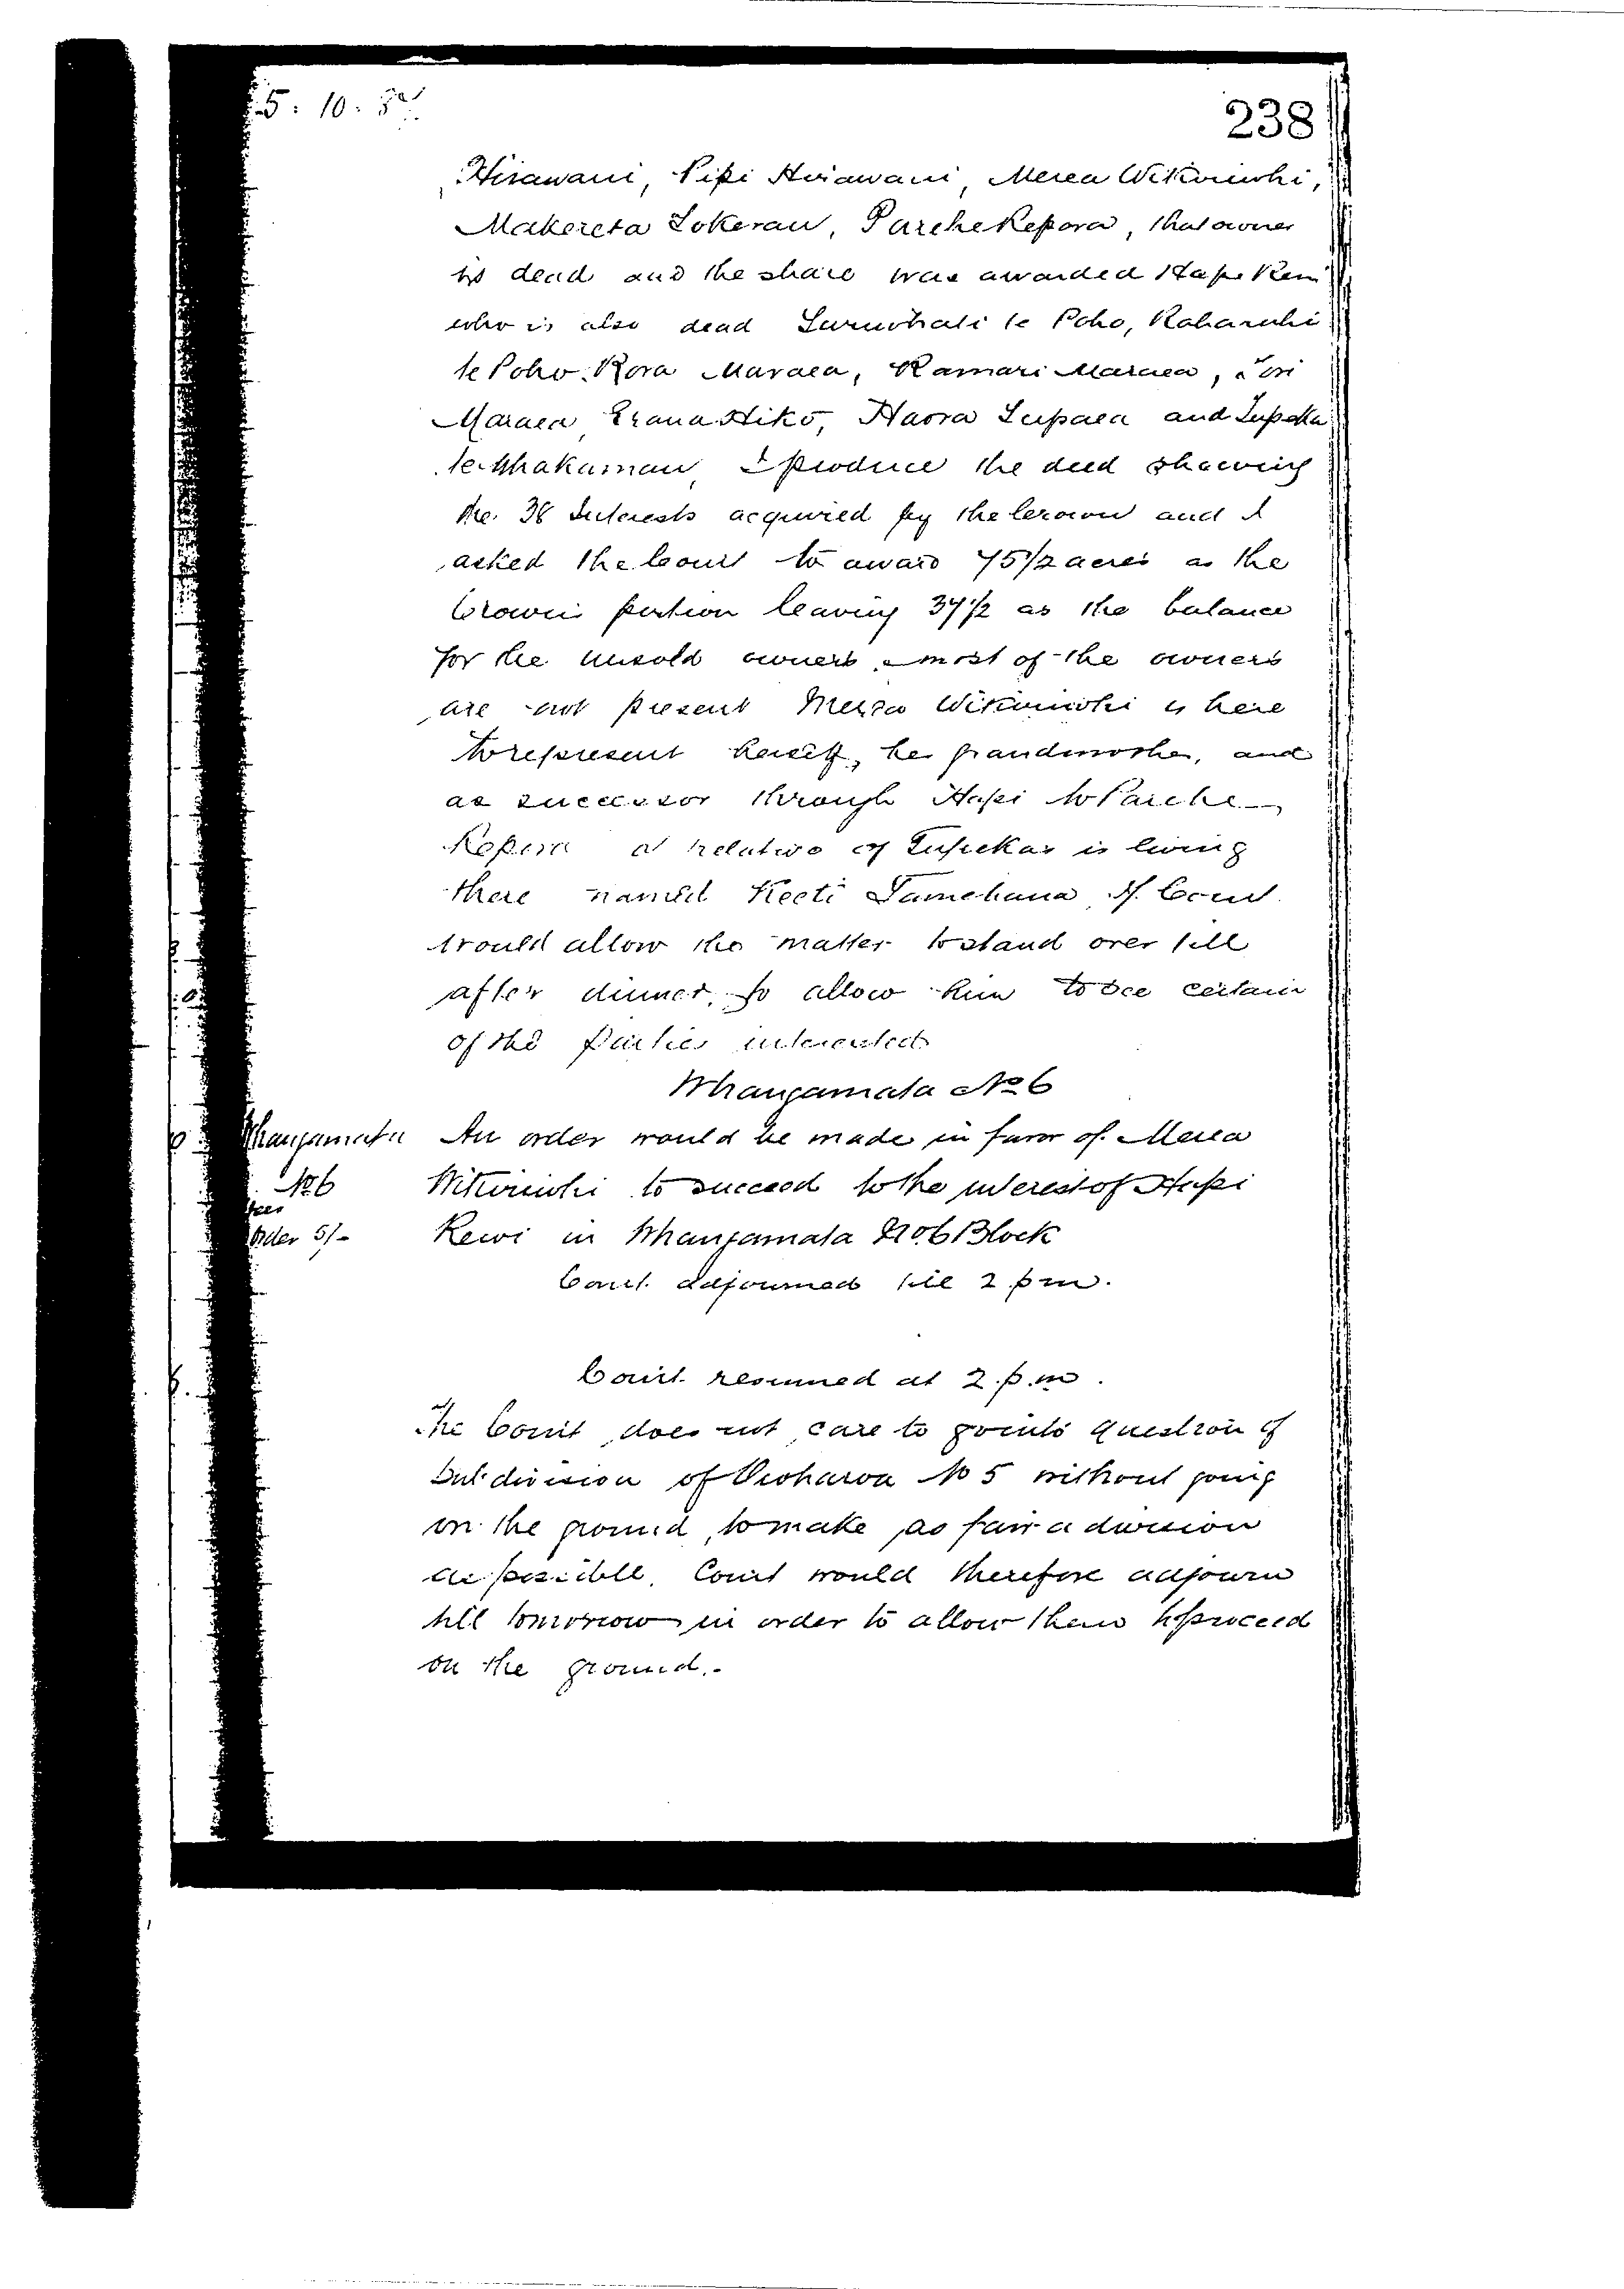 5. 10.
238
Hirawani, Pipi Hirawani, Merea Wikiriwhi,
Makereta Tokerau, Parehe Kepora, that owner
is dead and the share was awarded Hapi Rewi
who is also dead Turuwhati te Poho, Raharuhi
te Poho. Rora Maraea, Ramari Maraea, Tori
Maraea Erana Hiko, Haora Tupaea and Tupeka
te Whakamau, I produce the deed shewing
the 38 Interests acquired by the Crown and I
asked the Court to award 75 1/2 acres as the
Crown portion leaving 37 1/2 as the balance
for the unsold owners, most of the owners
are not present Merea Wikiriwhi is here
to represent herself, her grandmother, and
as successor through Hapi to Parehe
Kepora a relative of Tupeka is living
there named Reeti Tamehana, If Court
would allow the matter to stand over till
after dinner, to allow him to see certain
of the parties interested
Whangamata No 6
Whangamata An order would be made in favor of Merea
No 6 Wikiriwhi to succeed to the interest of Hapi
fees
Order 5/- Rewi in Whangamata No. 6 Block
Court adjourned till 2 pm.
Court resumed at 2. p.m.
The Court does not care to go into question of
Subdivision of No 5 without going
on the ground, to make as fair a division
as possible. Court would therefore adjourn
till tomorrow in order to allow them to proceed
on the ground.